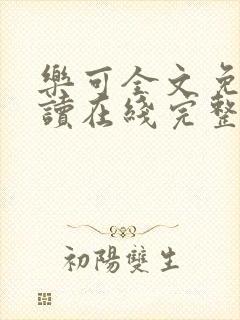 樂可全文免
讀在綫完整
初陽雙生